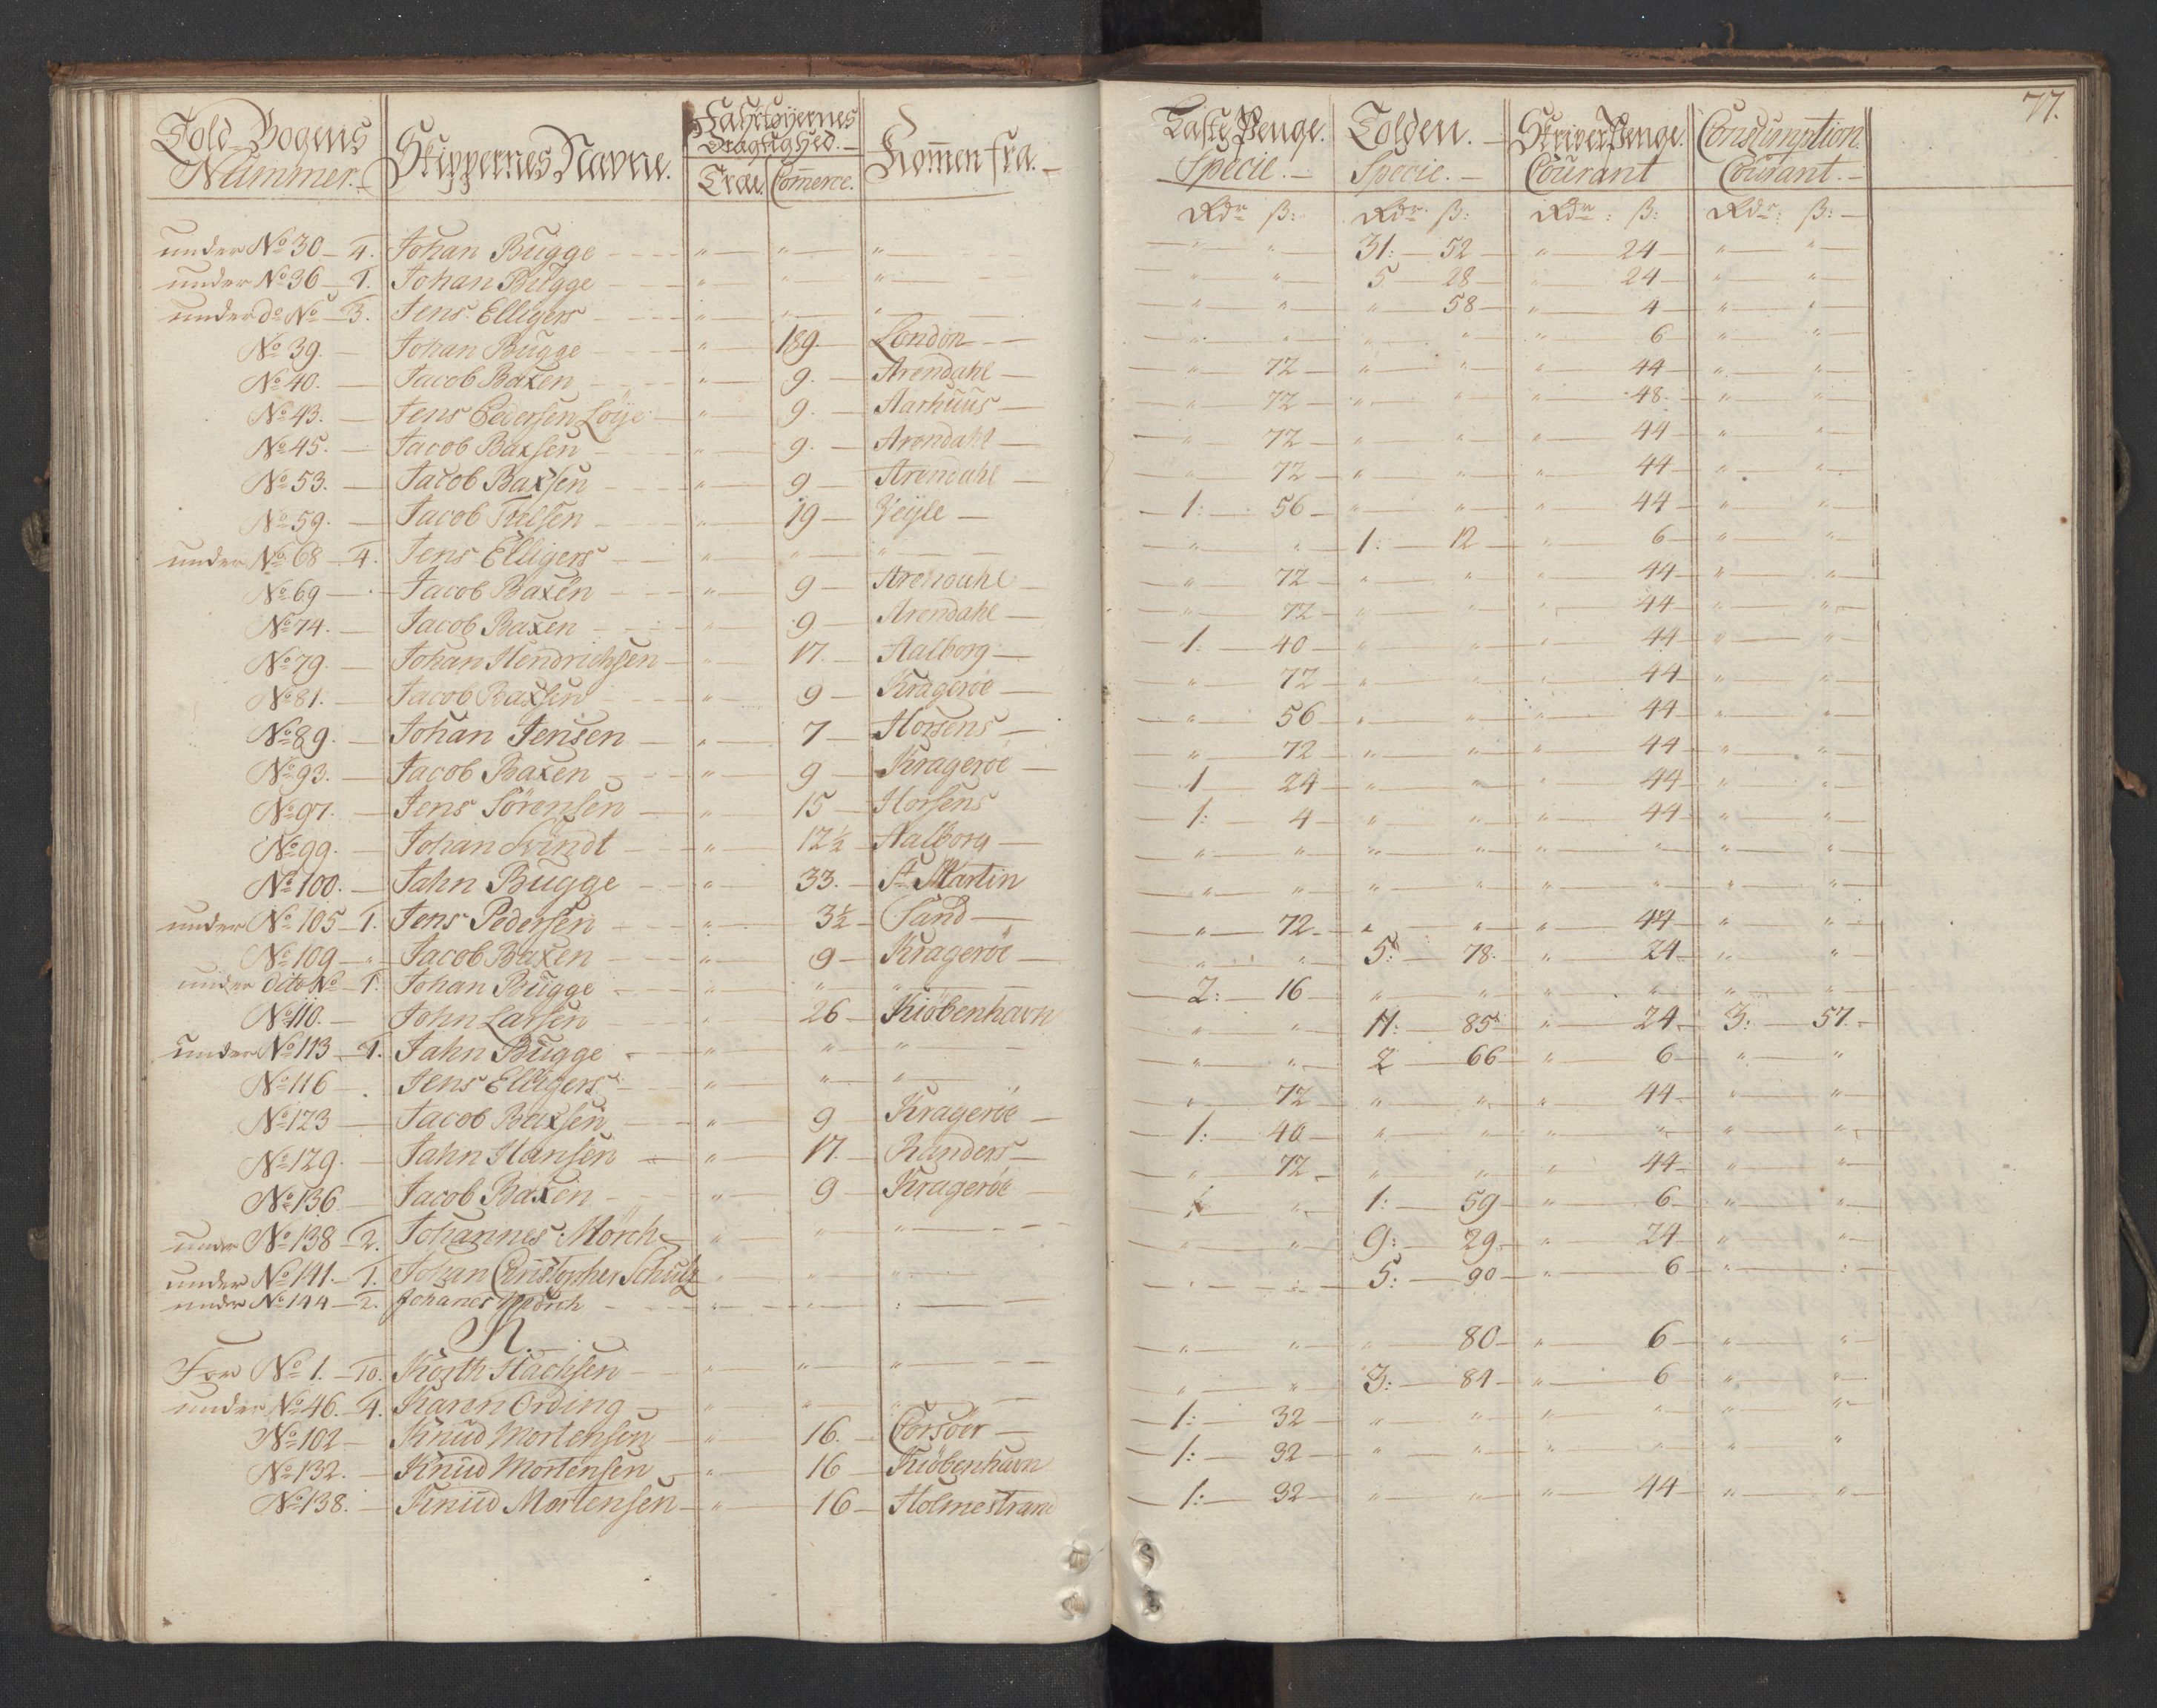 Told-Bogens Nummer. Skippernes Navne. Fahrtøyernes Drægtighed. Kom̄en fra.
Træl. Com̄erce.
under No 30 - 4. Johan Bugge " " "
under No 36 - 1. Johan Bugge " " "
under do No - 3. Jens Elligers " " "
No 39. Johan Bugge " 189. London
No 40. Jacob Baxen " 9. Arendahl
No 43. Jens Pedersen Löije " 9. Aarhuus
No 45. Jacob Baxsen " 9. Arendahl
No 53. Jacob Baxsen " 9 Arendahl
No 59. Jacob Troelsen " 19 Veijle
under No 68 - 4. Jens Elligers " " "
No 69 Jacob Baxen " 9 Arendahl
No 74. Jacob Baxen " 9 Arendahl
No 79. Johan Hendrichsen " 17. Aalborg
No 81. Jacob Baxsen " 9 Kragerøe
No 89. Johan Jensen " 7 Horsens
No 93. Jacob Baxen " 9 Kragerøe
No 97. Jens Sörensen " 15 Horsens
No 99. Johan Svindt " 12½ Aalborg
No 100. Jahn Bugge " 33. St Martin
under No 105 - 1. Jens Pedersen " 3½ Sand
No 109 Jacob Baxen " 9 Kragerøe
under dito No - 1. Johan Bugge " " "
No 110. John Larsen " 26 Kiøbenhavn
under No 113 - 1. Jahn Bugge " " "
No 116 Jens Elligers " " "
No 123 Jacob Baxsen " 9 Kragerøe
No 129. Jahn Hansen " 17. Randers
No 136 Jacob Baxen " 9 Kragerøe
under No 138 - 2. Johannes Mörch " " "
under No 141 - 1. Johan Christopher Schultz " " "
under No 144 - 2. Johanes Mörch " " "
K.
For No 1. - 10. Korth Hachsen " " "
under No 46. - 4. Karen Ording " " "
No 102 Knud Mortensen " 16. Corsöer
No 132. Knud Mortensen " 16 Kiøbenhavn
No 138. Knud Mortensen " 16 Holmestrand
77.
Laste Penge. Tolden. Skriver Penge. Consumption.
Specie. Specie. Courant Courant.
Rdr ß: Rdr ß: Rdr: ß: Rdr: ß:
" " 31: 52 " 24 " "
" " 5 28 " 24 " "
" " " 58 " 4 " "
" " " " " 6 " "
" 72 " " " 44 " "
" 72 " " " 48. " "
" 72 " " " 44 " "
" 72 " " " 44 " "
1: 56 " " " 44 " "
" " 1: 12 " 6 " "
" 72 " " " 44 " "
" 72 " " " 44 " "
1: 40 " " " 44 " "
" 72 " " " 44 " "
" 56 " " " 44 " "
" 72 " " " 44 " "
1 24 " " " 44 " "
1: 4 " " " 44 " "
" " " " " " " "
" " " " " " " "
" 72 " " " 44 " "
" " 5: 78. " 24 " "
2: 16 " " " " " "
" " 11: 85 " 24 3: 57.
" " 2 66 " 6 " "
" 72 " " " 44 " "
1: 40 " " " " " "
" 72 " " " 44 " "
" " 1: 59 " 6 " "
" " 9: 29 " 24 " "
" " 5: 90 " 6 " "
" " " 80 " 6 " "
" " 3: 84 " 6 " "
1: 32 " " " " " "
1: 32 " " " " " "
1: 32 " " " 44 " "